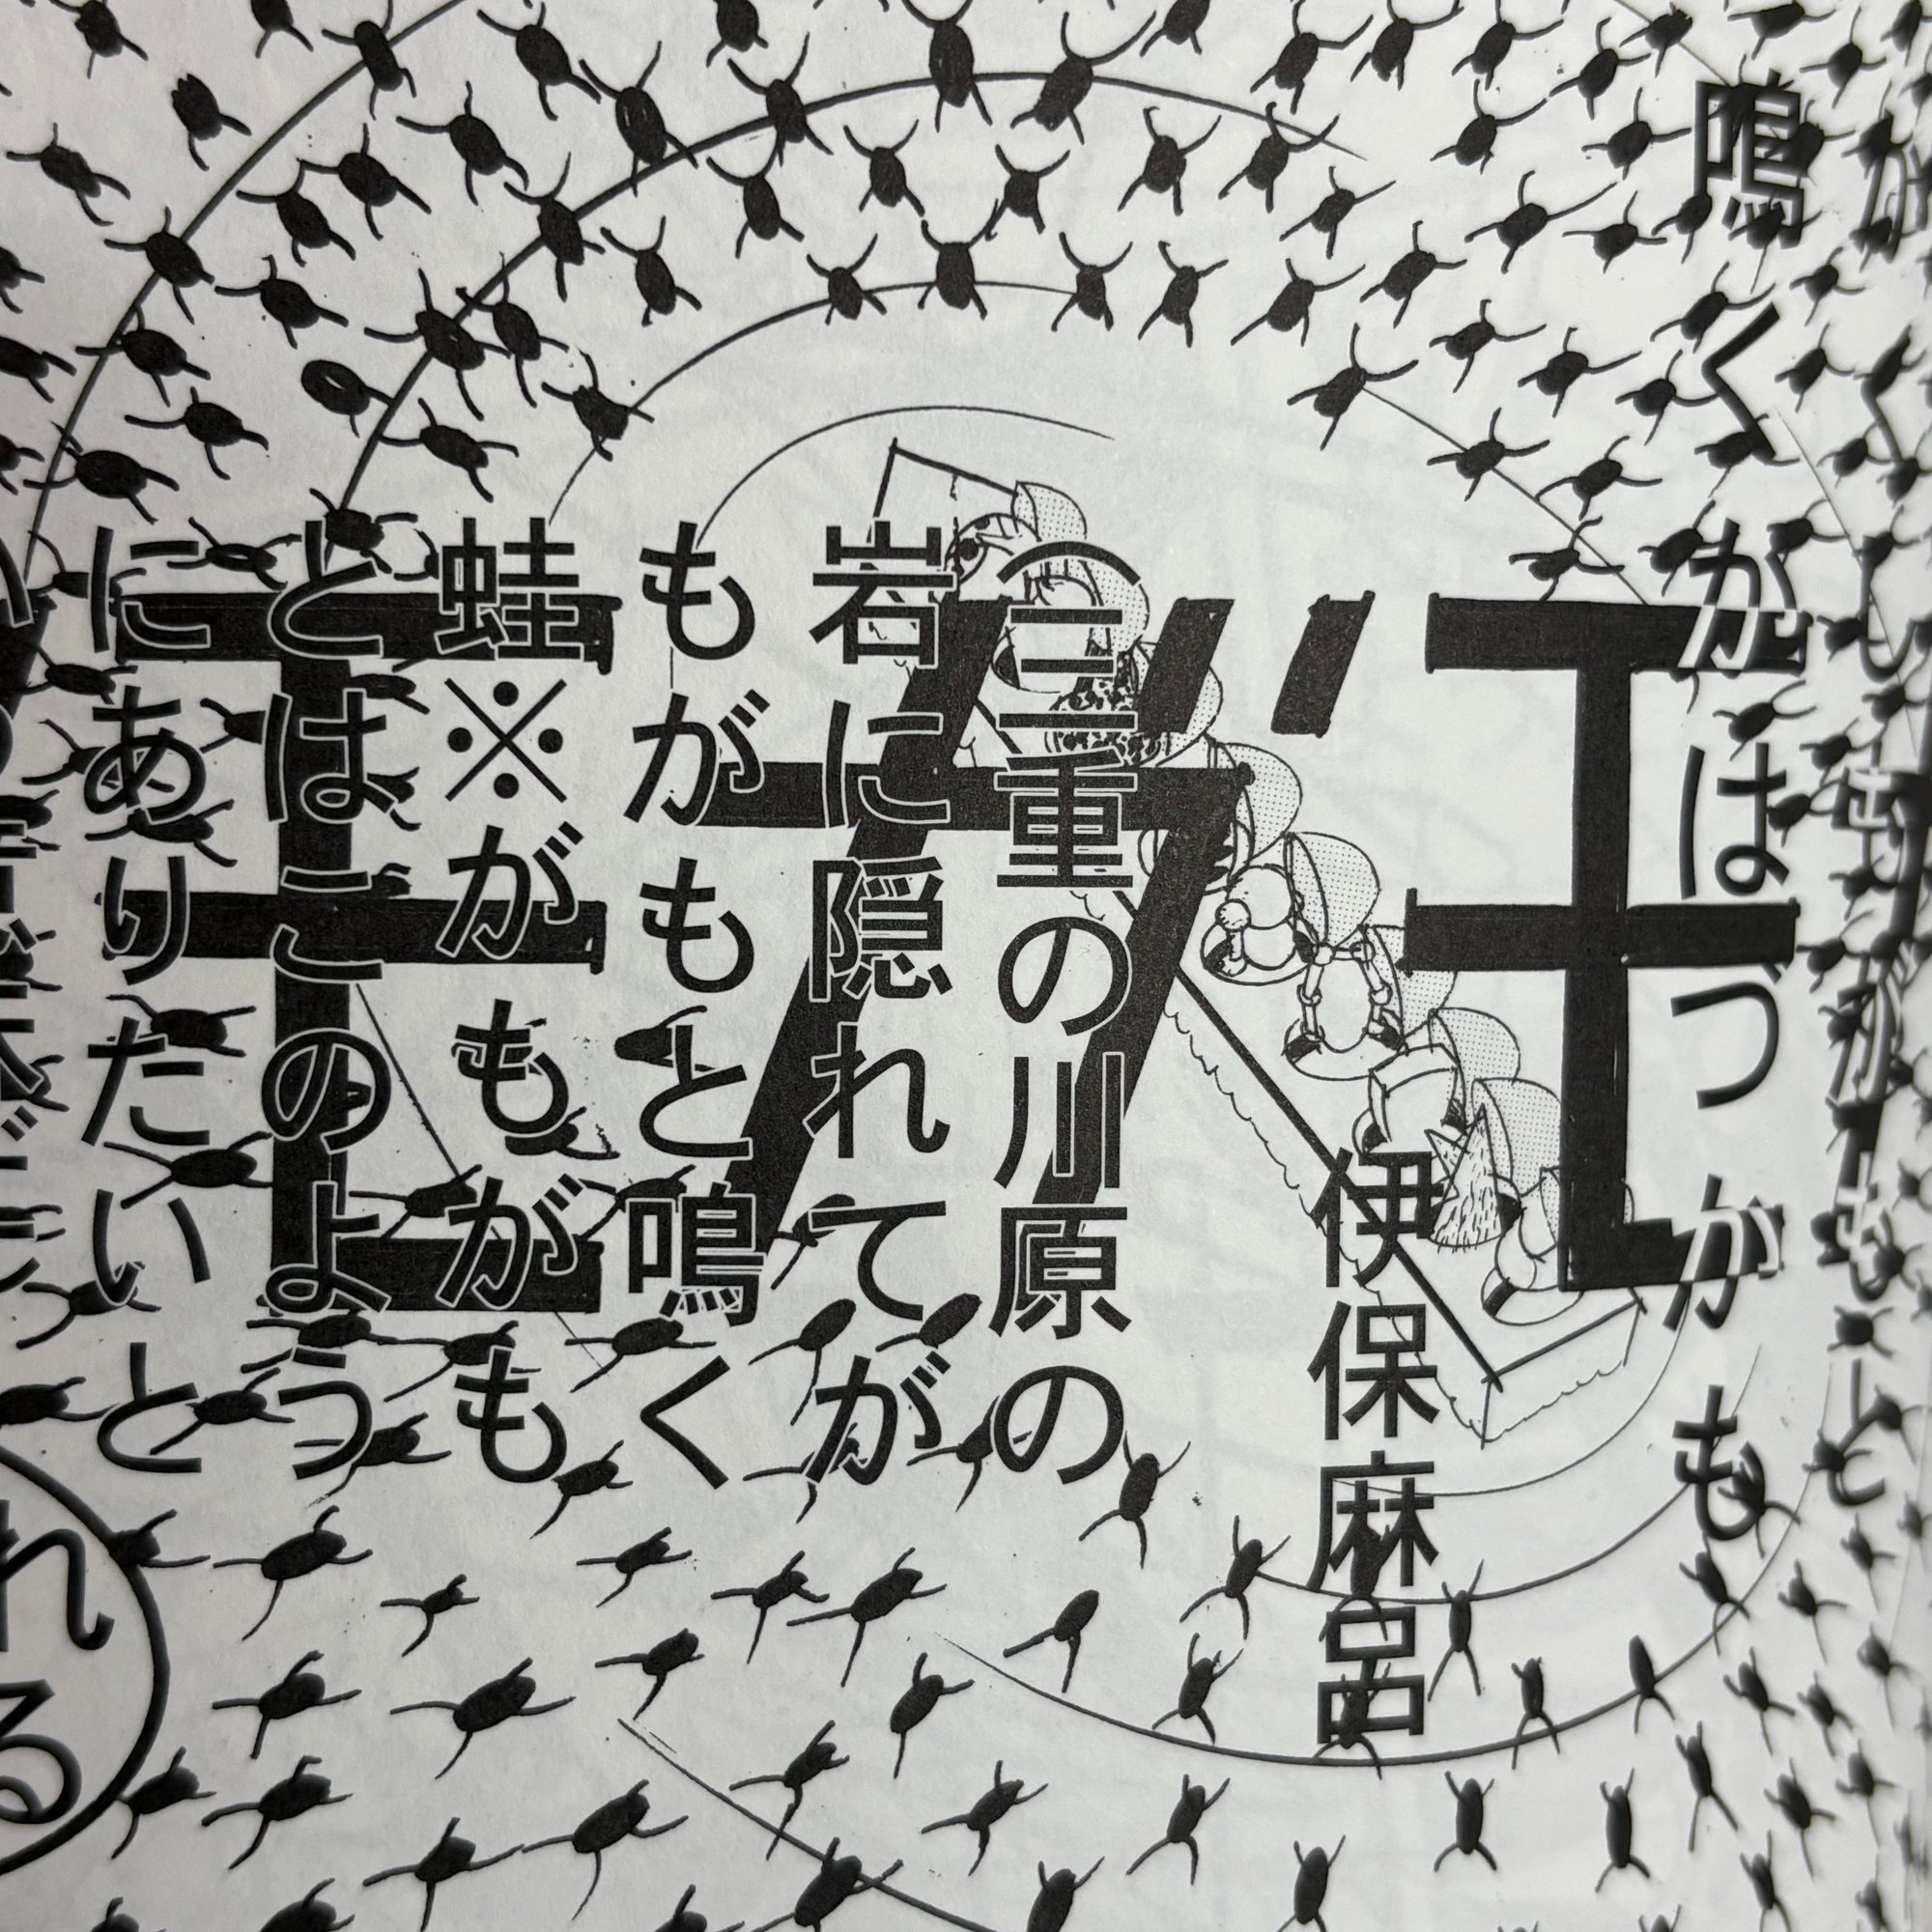 かくしもがもと
鳴くかはづかも
伊保麻呂
モガモ
(三重の川原の
岩に隠れてが
もがもと鳴く
蛙※がもがも
とはこのよう
にありたいと
れる